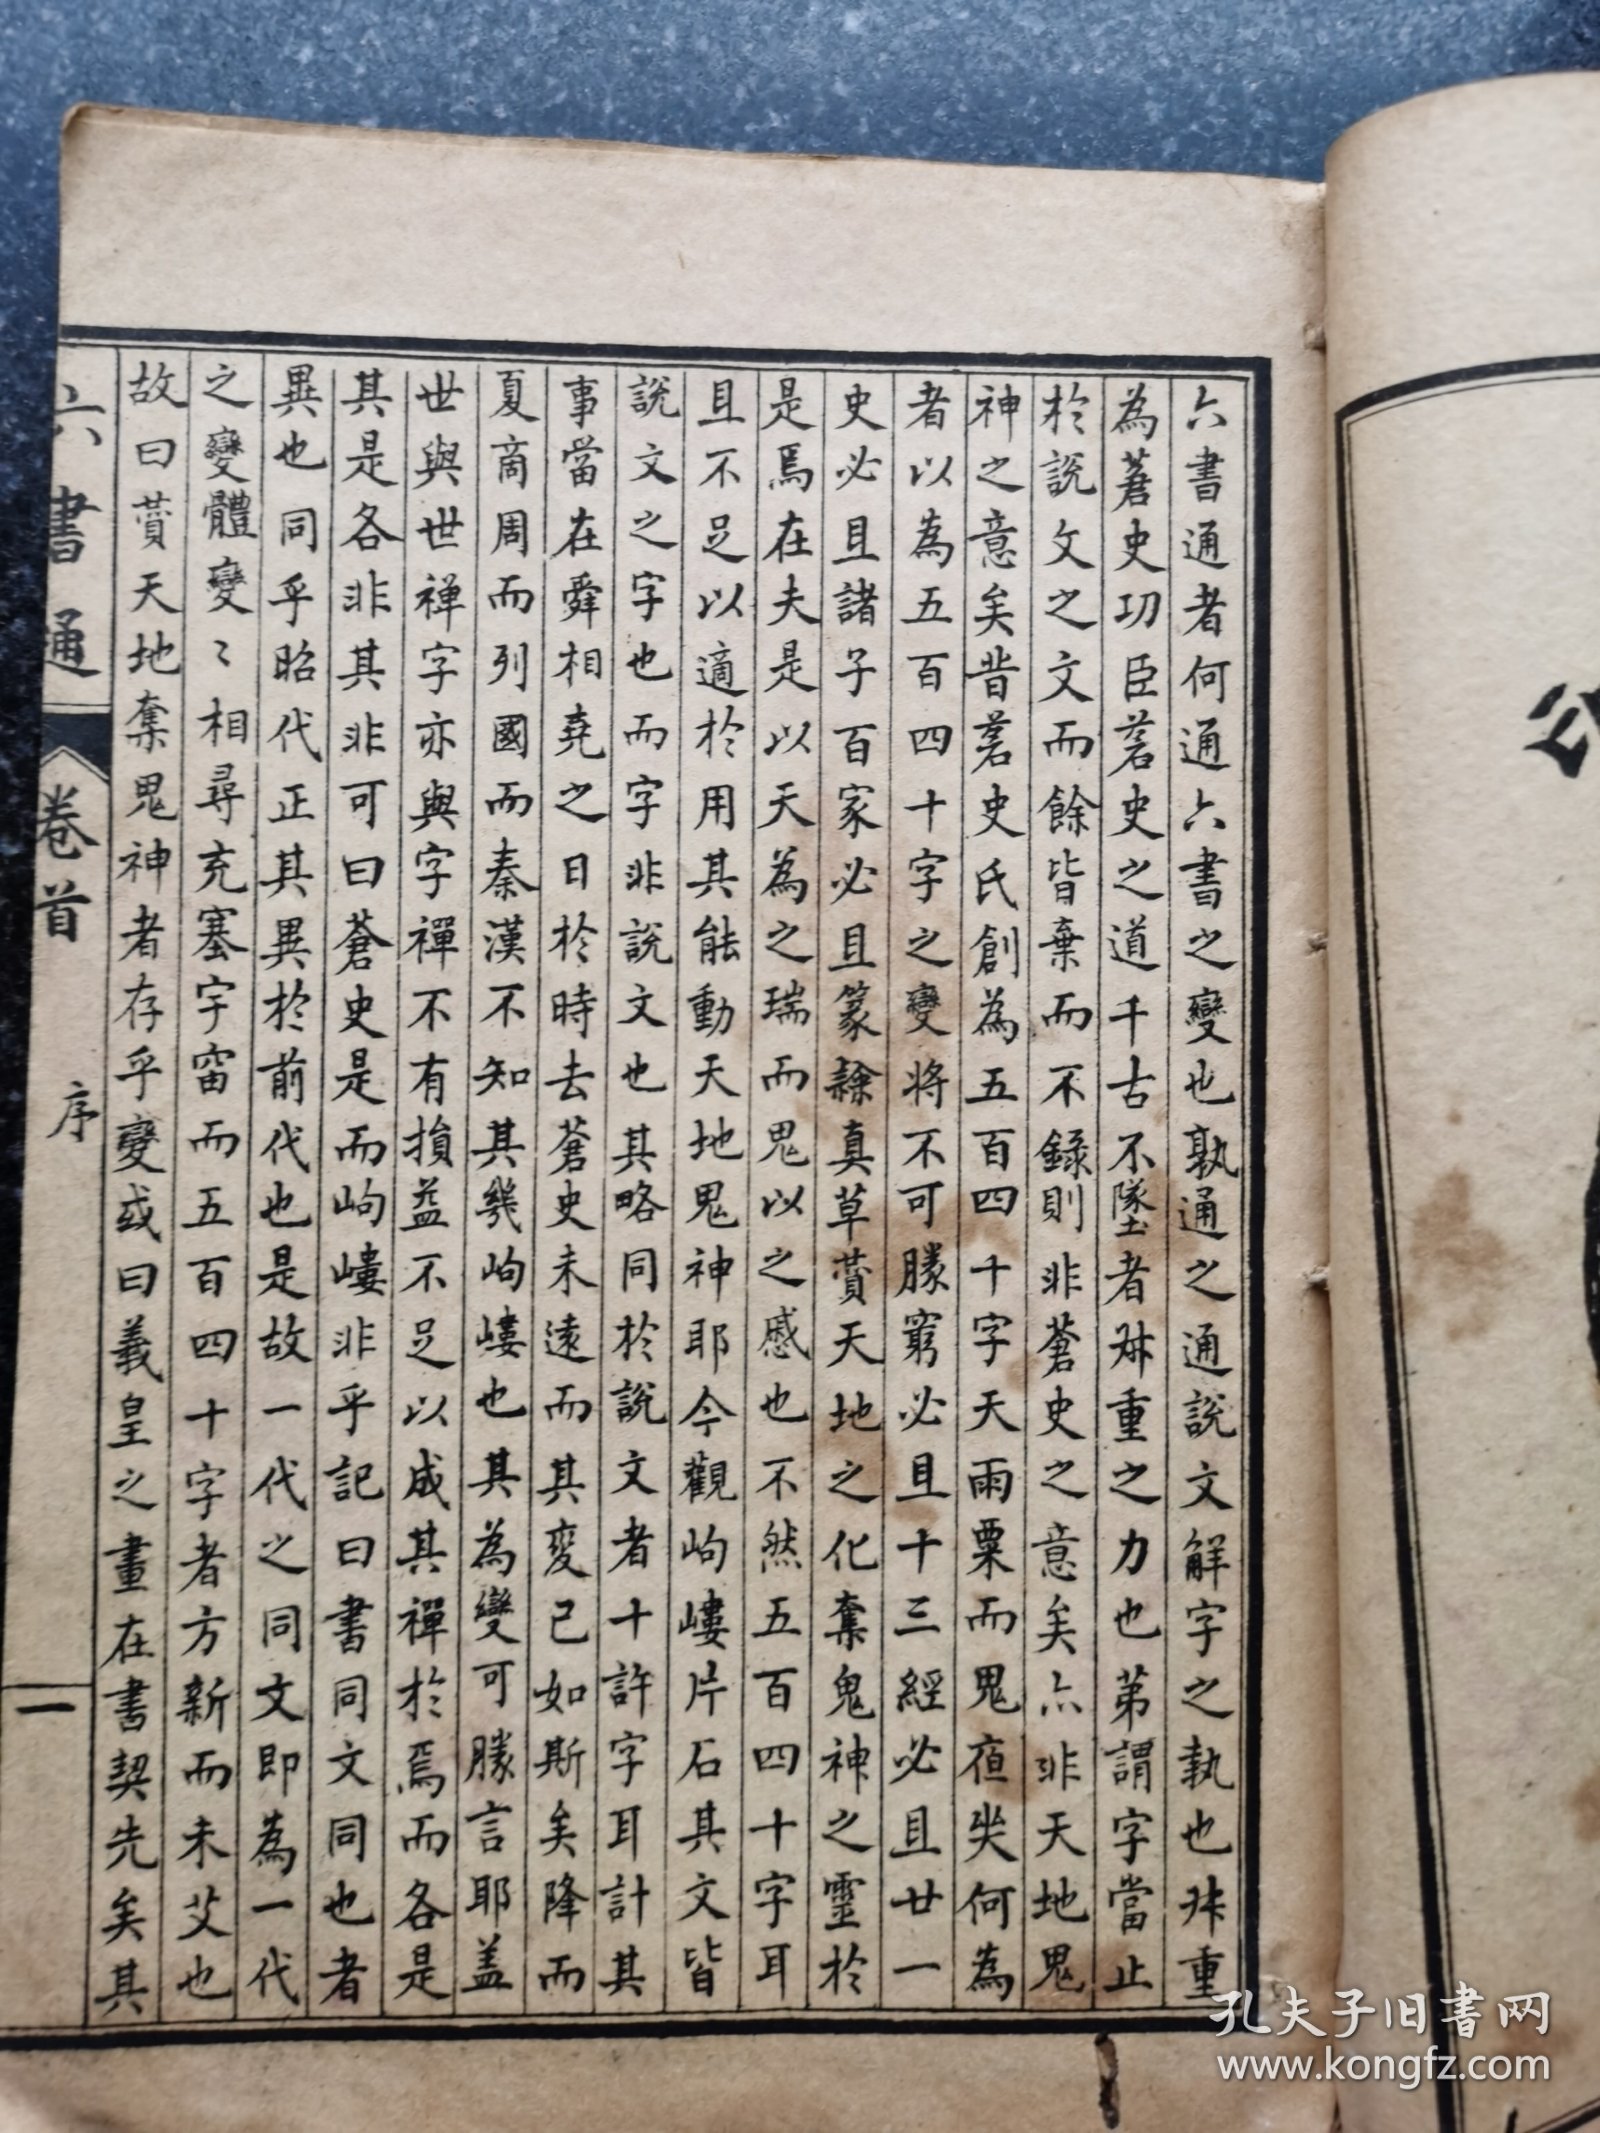 六書通者何通六書之變也孰通之通說文解字之執也叔重
為蒼史功臣蒼史之道千古不墜者叔重之力也第謂字當止
於說文之文而餘皆棄而不錄則非蒼史之意矣亦非天地鬼
神之意矣昔蒼史氏創為五百四十字天雨粟而鬼夜哭何為
者以為五百四十字之變將不可勝窮必且十三經必且廿一
史必且諸子百家必且篆隸真草賁天地之化奪鬼神之靈於
是焉在夫是以天為之瑞而鬼以之慼也不然五百四十字耳
且不足以適於用其能動天地鬼神耶今觀岣嶁片石其文皆
說文之字也而字非說文也其略同於說文者十許字耳計其
事當在舜相堯之日於時去蒼史未遠而其變已如斯矣降而
夏商周而列國而秦漢不知其幾岣嶁也其為變可勝言耶盖
世與世禅字亦與字禪不有損益不足以成其禪於焉而各是
其是各非其非可曰蒼史是而岣嶁非乎記曰書同文同也者
異也同乎昭代正其異於前代也是故一代之同文即為一代
之變體變〻相尋充塞宇宙而五百四十字者方新而未艾也
故曰賁天地奪鬼神者存乎變或曰義皇之畫在書契先矣其
六書通
卷首
序
一
孔夫子旧书网
www.kongfz.com